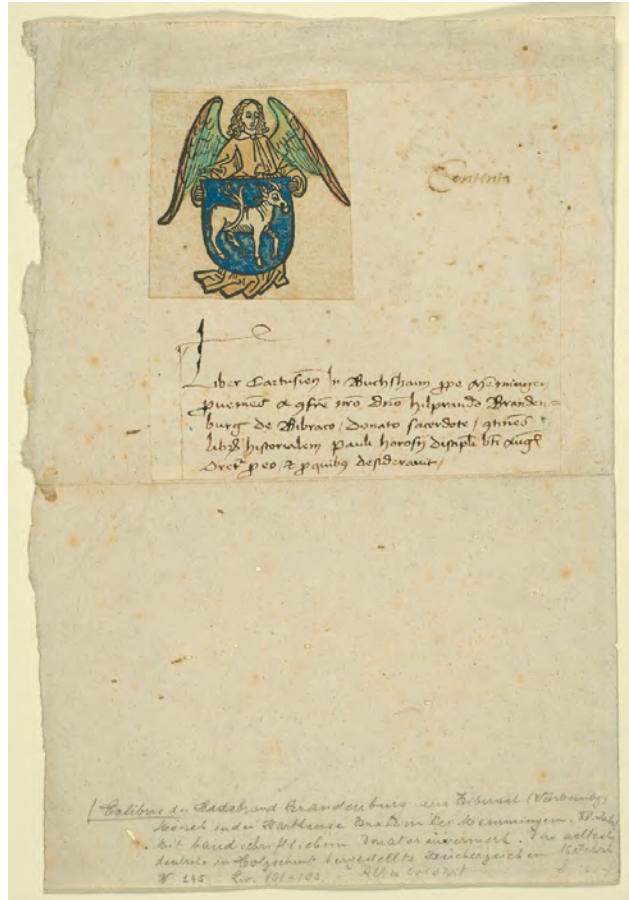 Contenta
Liber Cartusien̄ In Buchshaim ꝓpe Mēmingen
ꝓueniēs a ꝯfrē nrō dnō hilprando Branden=
burg de Bibraco / Donato sacerdote / ꝯtinēs
libꝝ historialem Pauli horosij discipli bti Augꝰ
Oretꝰ ꝓ eo, et ꝓ quibꝰ desiderauit /
Exlibris des Brandenburg aus Biberach
Mönch in der Karthause Buxheim bei Memmingen. XV. Jahr
Mit handschriftlichem Donatorenvermerk. Das aelteste
in Holzschnitt hergestellte Buecherzeichen
W 245